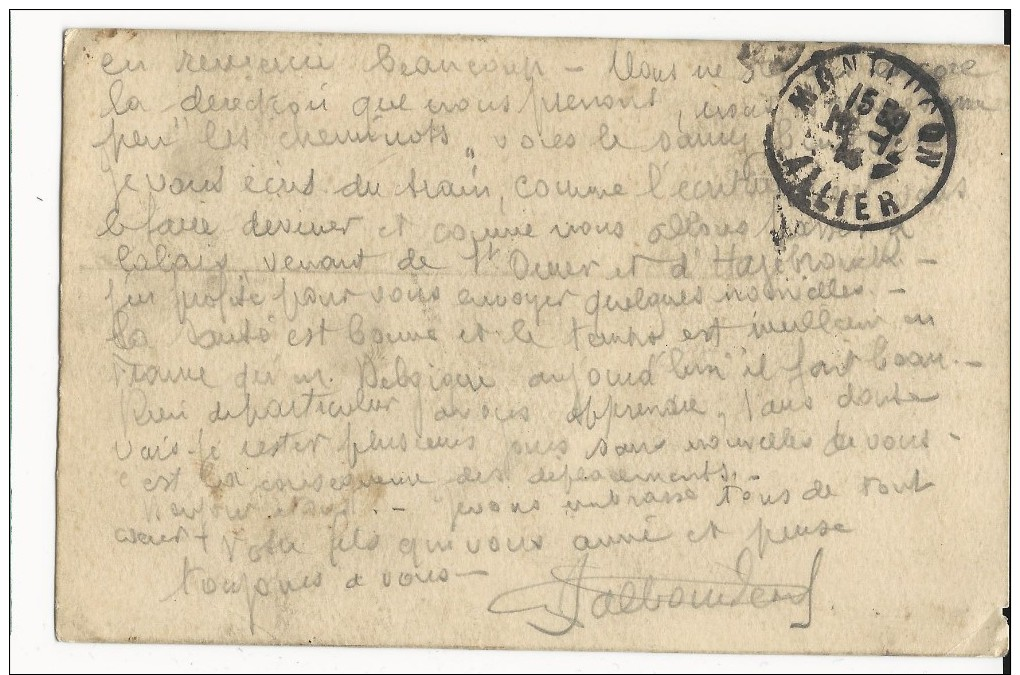 en remercie beaucoup - Vous ne
la direction que nous prenons,
peu "les cheminots" voies le
Je vous écris du train, comme l'écriture
le faire deviner et comme nous allons passer à
Calais, venant de St Omer et d'Hazebrouck -
J'en profite pour vous envoyer quelques nouvelles. -
La santé est bonne et le temps est meilleur en
France qu'en Belgique aujourd'hui il fait beau. -
Rien de particulier à vous apprendre, sans doute
vais-je rester plusieurs jours sans nouvelles de vous -
c'est la conséquence des déplacements. -
Je vous embrasse tous de tout
coeur + Votre fils qui vous aime et pense
toujours à vous -
MONTLUCON
15 50
ALLIER